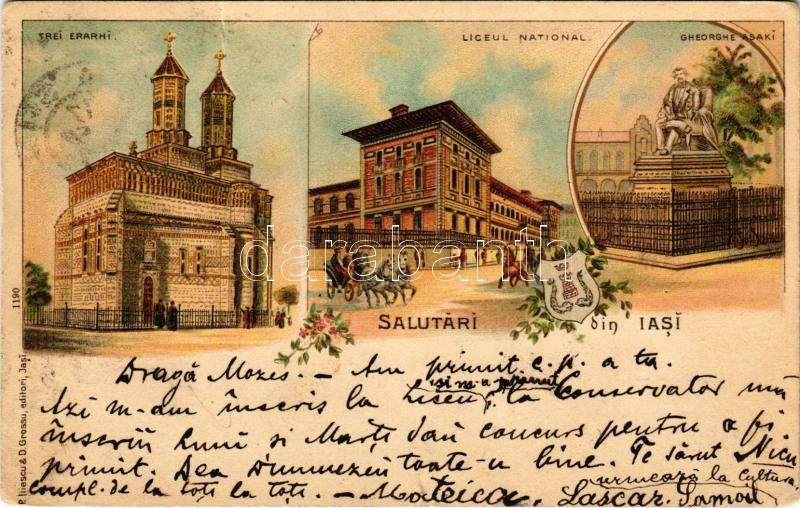 TREI ERARHI.
LICEUL NATIONAL.
GHEORGHE ASAKI
darabanth.com
SALUTĂRI din IAȘI
1190
P. Iliescu & D. Grossu, editori, Jași
Dragă Mozes. – Am primit c. p. a ta.
Azi m-am înscris la Liceu, și m-a primit la Conservator mă
înscriu Luni si Marți dau concurs pentru a fi
primit. Dea Dumnezeu toate-n bine. Te sărut Nicu
compl. de la toți la toți. – Mateica. Lascar. Samoil
urmează la Cultura